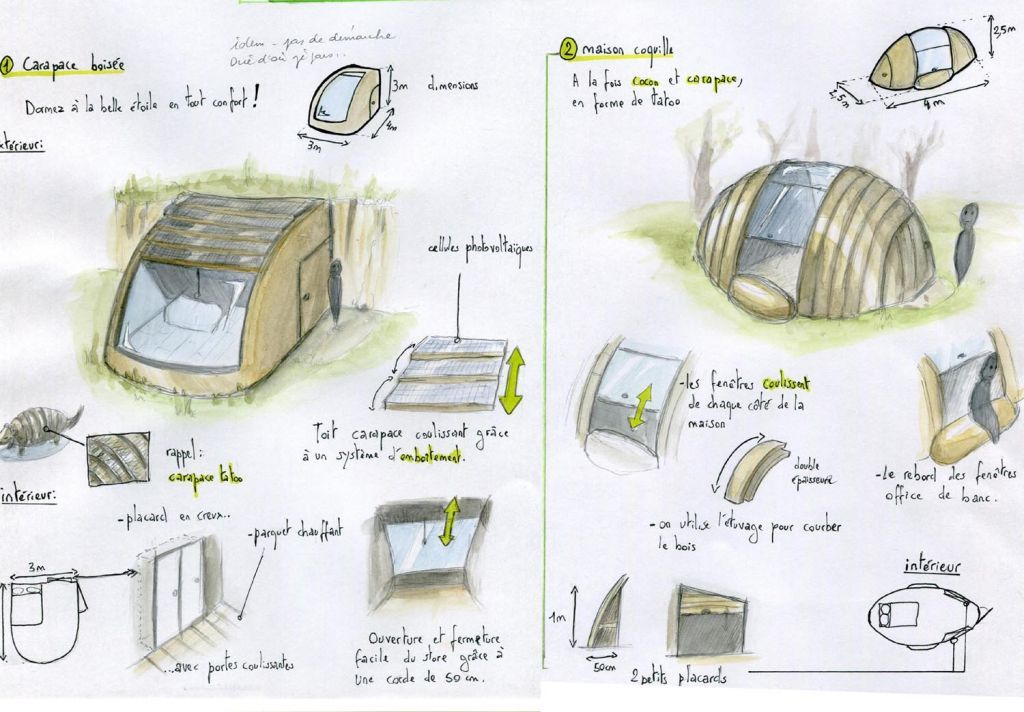 1 Carapace boisée
idem - pas de démarche
Dormez à la belle étoile en tout confort !
3m
dimensions
4m
3m
extérieur:
cellules photovoltaïques
Toit carapace coulissant grâce
à un système d'emboîtement.
rappel:
carapace tatoo
intérieur:
-placard en creux..
-parquet chauffant
3m
...avec portes coulissantes
Ouverture et fermeture
facile du store grâce à
une corde de 50 cm.
2 maison coquille
A la fois cocon et carapace,
en forme de tatoo
2,5m
4m
-les fenêtres coulissent
de chaque côté de la
maison
double
épaisseure
-Le rebord des fenêtres
office de banc.
-on utilise l'étuvage pour courber
le bois
intérieur
1m
50cm
2 petits placards